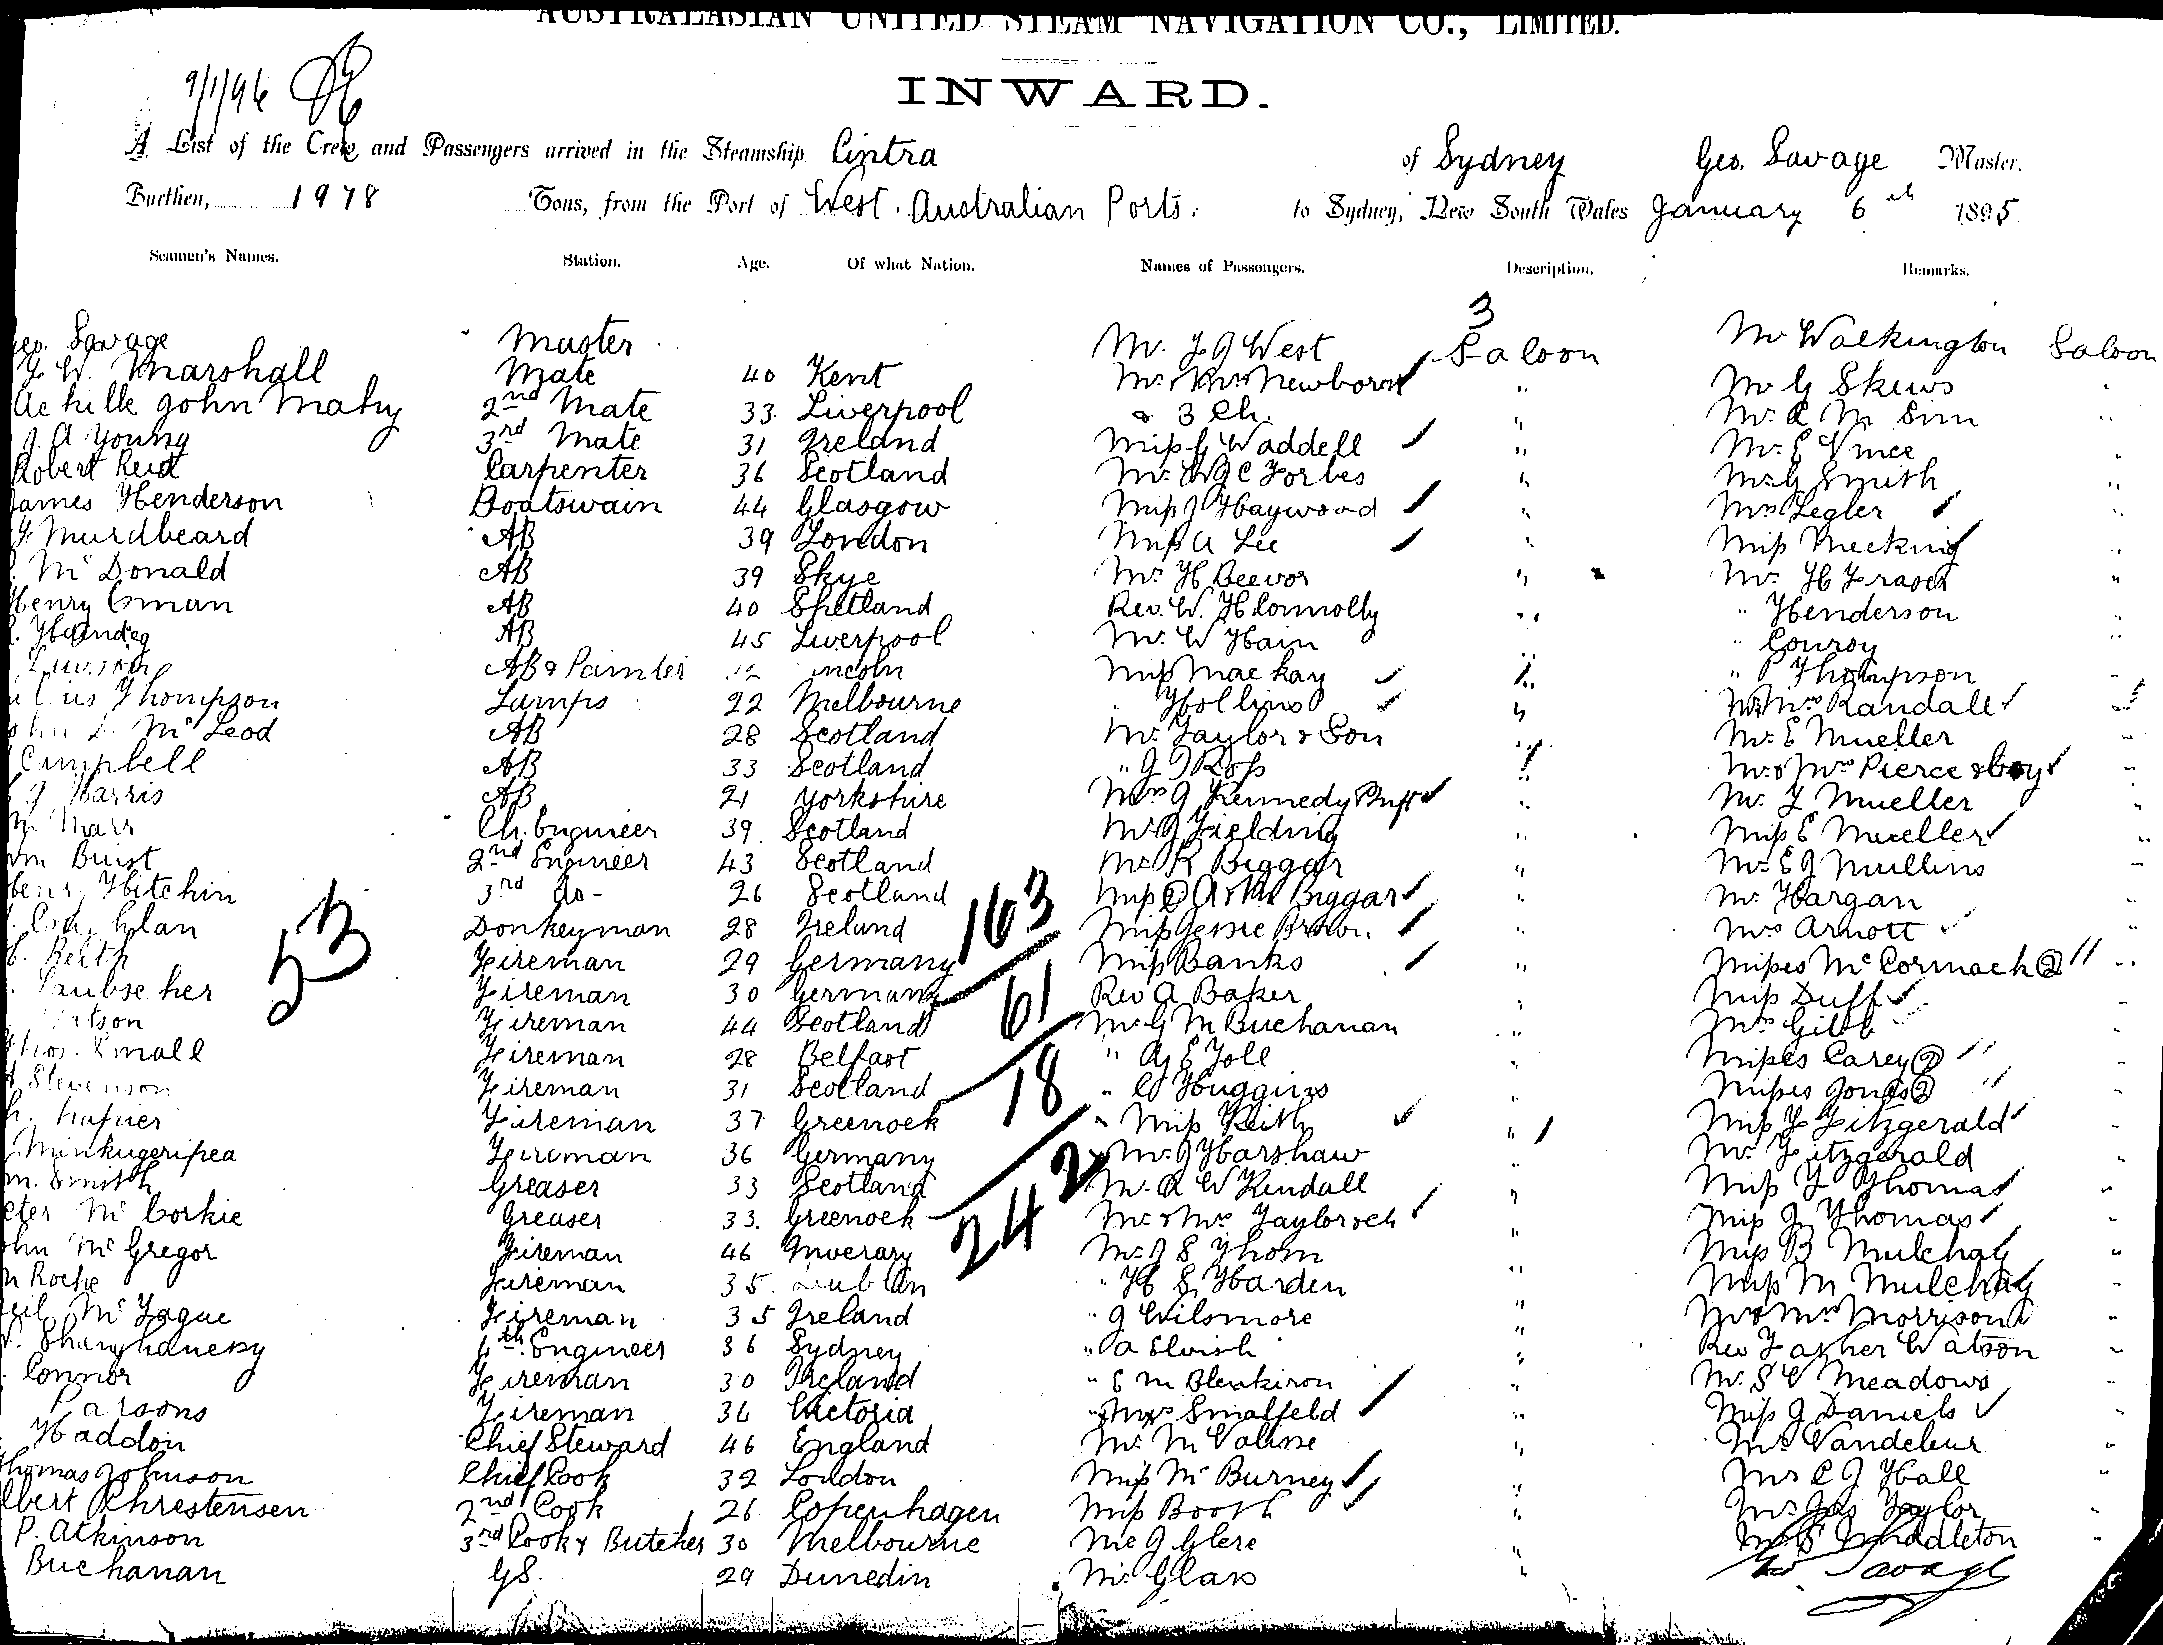 AUSTRALASIAN UNITED STEAM NAVIGATION CO., LIMITED.
9/1/96
INWARD.
A List of the Crew and Passengers arrived in the Steamship Cintra of Sydney Geo. Savage Master.
Burthen, 1978 Tons, from the Port of West. Australian Ports. to Sydney, New South Wales January 6th 1895
Seamen's Names. Station. Age. Of what Nation. Names of Passengers. Description. Remarks.
3
Geo. Savage Master Mr. J G West Saloon Mr Walkington Saloon
W. Marshall Mate 40 Kent Mr & Mrs Newborn " Mr G Skews "
Achille John Mahy 2nd Mate 33 Liverpool & 3 Ch. " Mr. A M Sim "
J. A Young 3rd Mate 31 Ireland Miss G Waddell " Mr. E Vince "
Robert Reid Carpenter 36 Scotland Mr. W J C Forbes " Mr G Smith "
James Henderson Boatswain 44 Glasgow Miss J Haywood " Mrs Legler "
Murdbeard AB 39 London Miss A Lee " Miss Mecking "
McDonald AB 39 Skye Mr. H Beevor " Mr. H Fraser "
Henry AB 40 Shetland Rev. W. H Connolly " " Henderson "
AB 45 Liverpool Mr. W Hain " " Conroy "
AB & Painter Lincoln Miss Mackay " " P Thompson "
Thompson Lamps 22 Melbourne " Hollins " Mr & Mrs Randall "
McLeod AB 28 Scotland Mr. Taylor & Son " Mr. E Mueller "
Campbell AB 33 Scotland " J J Ross " Mr & Mrs Pierce & boy "
Harris AB 21 Yorkshire Mrs J Kennedy " Mr. F Mueller "
Marr Ch. Engineer 39 Scotland Mr J Fielding " Miss E Mueller "
Wm Buist 2nd Engineer 43 Scotland Mr. R Biggar " Mr. E J Mullins "
Henry Hitchin 3rd do- 26 Scotland 163 Biggar " Mr. Hargan "
Donkeyman 28 Ireland Miss Jessie Brown " Mrs Arnott "
53
Keith Fireman 29 Germany Miss Banks " Misses McCormack 2 "
Fireman 30 Germany 61 Rev A Baker " Miss Duff "
Watson Fireman 44 Scotland Mr G M Buchanan " Mrs Gibb "
Thos. Small Fireman 28 Belfast " " Misses Carey 2 "
Stevenson Fireman 31 Scotland 18 " C Huggins " Misses Jones 2 "
Hafner Fireman 37 Greenock " Miss Keith " Miss F Fitzgerald "
Fireman 36 Germany 2 Mr. J Harshaw " Mr. Fitzgerald "
Wm. Smith Greaser 33 Scotland Mr. A W Kendall " Miss F Thomas "
Peter McCorkie Greaser 33. Greenock 24 Mr & Mrs Taylor & ch " Miss J Thomas "
John McGregor Fireman 46 Inverary Mr. J S Thom " Miss B Mulchay "
Roche Fireman 35. Dublin " H S Harden " Miss M Mulchay "
Neil McTague Fireman 35 Ireland " J Wilsmore " Mr & Mrs Morrison
Shanghanesy 4th Engineer 36 Sydney " A Elvish " Rev Father Watson "
Connor Fireman 30 Ireland " E M Blenkiron " Mr. S C Meadows "
Parsons Fireman 36 Victoria " Mrs Smalfeld " Miss J Daniels "
Haddon Chief Steward 46 England Mr. M " Mr. Vandeleur "
Thomas Johnson Chief Cook 32 London Miss McBurney " Mr C J Hall "
Albert Chrestensen 2nd Cook 26 Copenhagen Miss Booth " Mr. Jas Taylor "
P. Atkinson 3rd Cook & Butcher 30 Melbourne Mr J Glere " Middleton "
Buchanan G.S. 29 Dunedin Mr. Glass " Geo. Savage